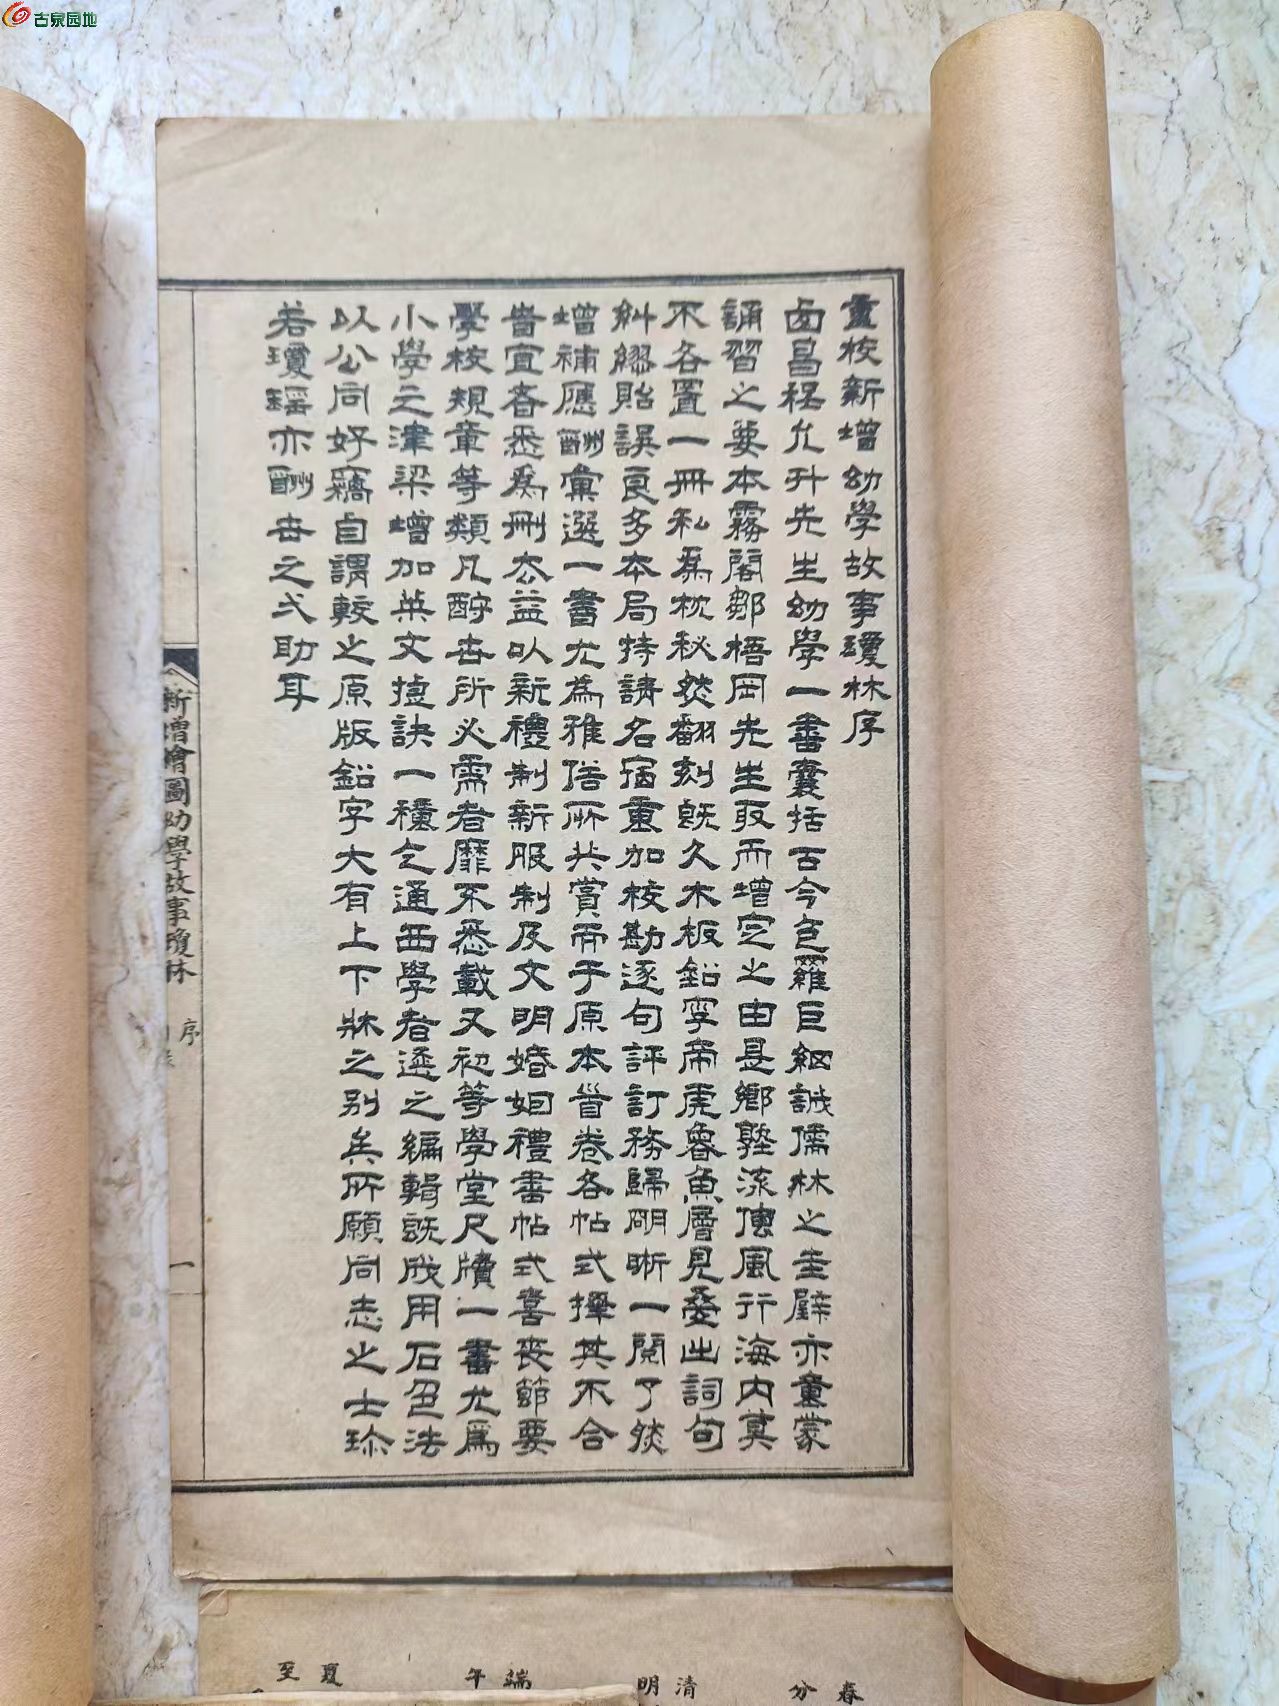 古泉园地
重校新增幼學故事瓊林序
西昌程允升先生幼學一書囊括古今包羅巨細誠儒林之圭璧亦童蒙
誦習之要本霧閣鄒梧岡先生取而增定之由是鄉塾流傳風行海内莫
不各置一冊私爲枕秘然翻刻既久木板鉛字帝虎魯魚層見叠出詞句
糾繆貽誤良多本局特請名宿重加校勘逐句評訂務歸明晰一閱了然
增補應酬彙選一書尤爲雅俗所共賞而于原本首卷各帖式擇其不合
時宜者悉爲刪去益以新禮制新服制及文明婚姻禮書帖式喜喪節要
學校規章等類凡酬世所必需者靡不悉載又初等學堂尺牘一書尤爲
小學之津梁增加英文捷訣一種乞通西學者遴之編輯既成用石印法
以公同好竊自謂較之原版鉛字大有上下牀之别矣所願同志之士珍
若瓊瑤亦酬世之弌助耳
新增繪圖幼學故事瓊林
序
一
春分
清明
端午
夏至